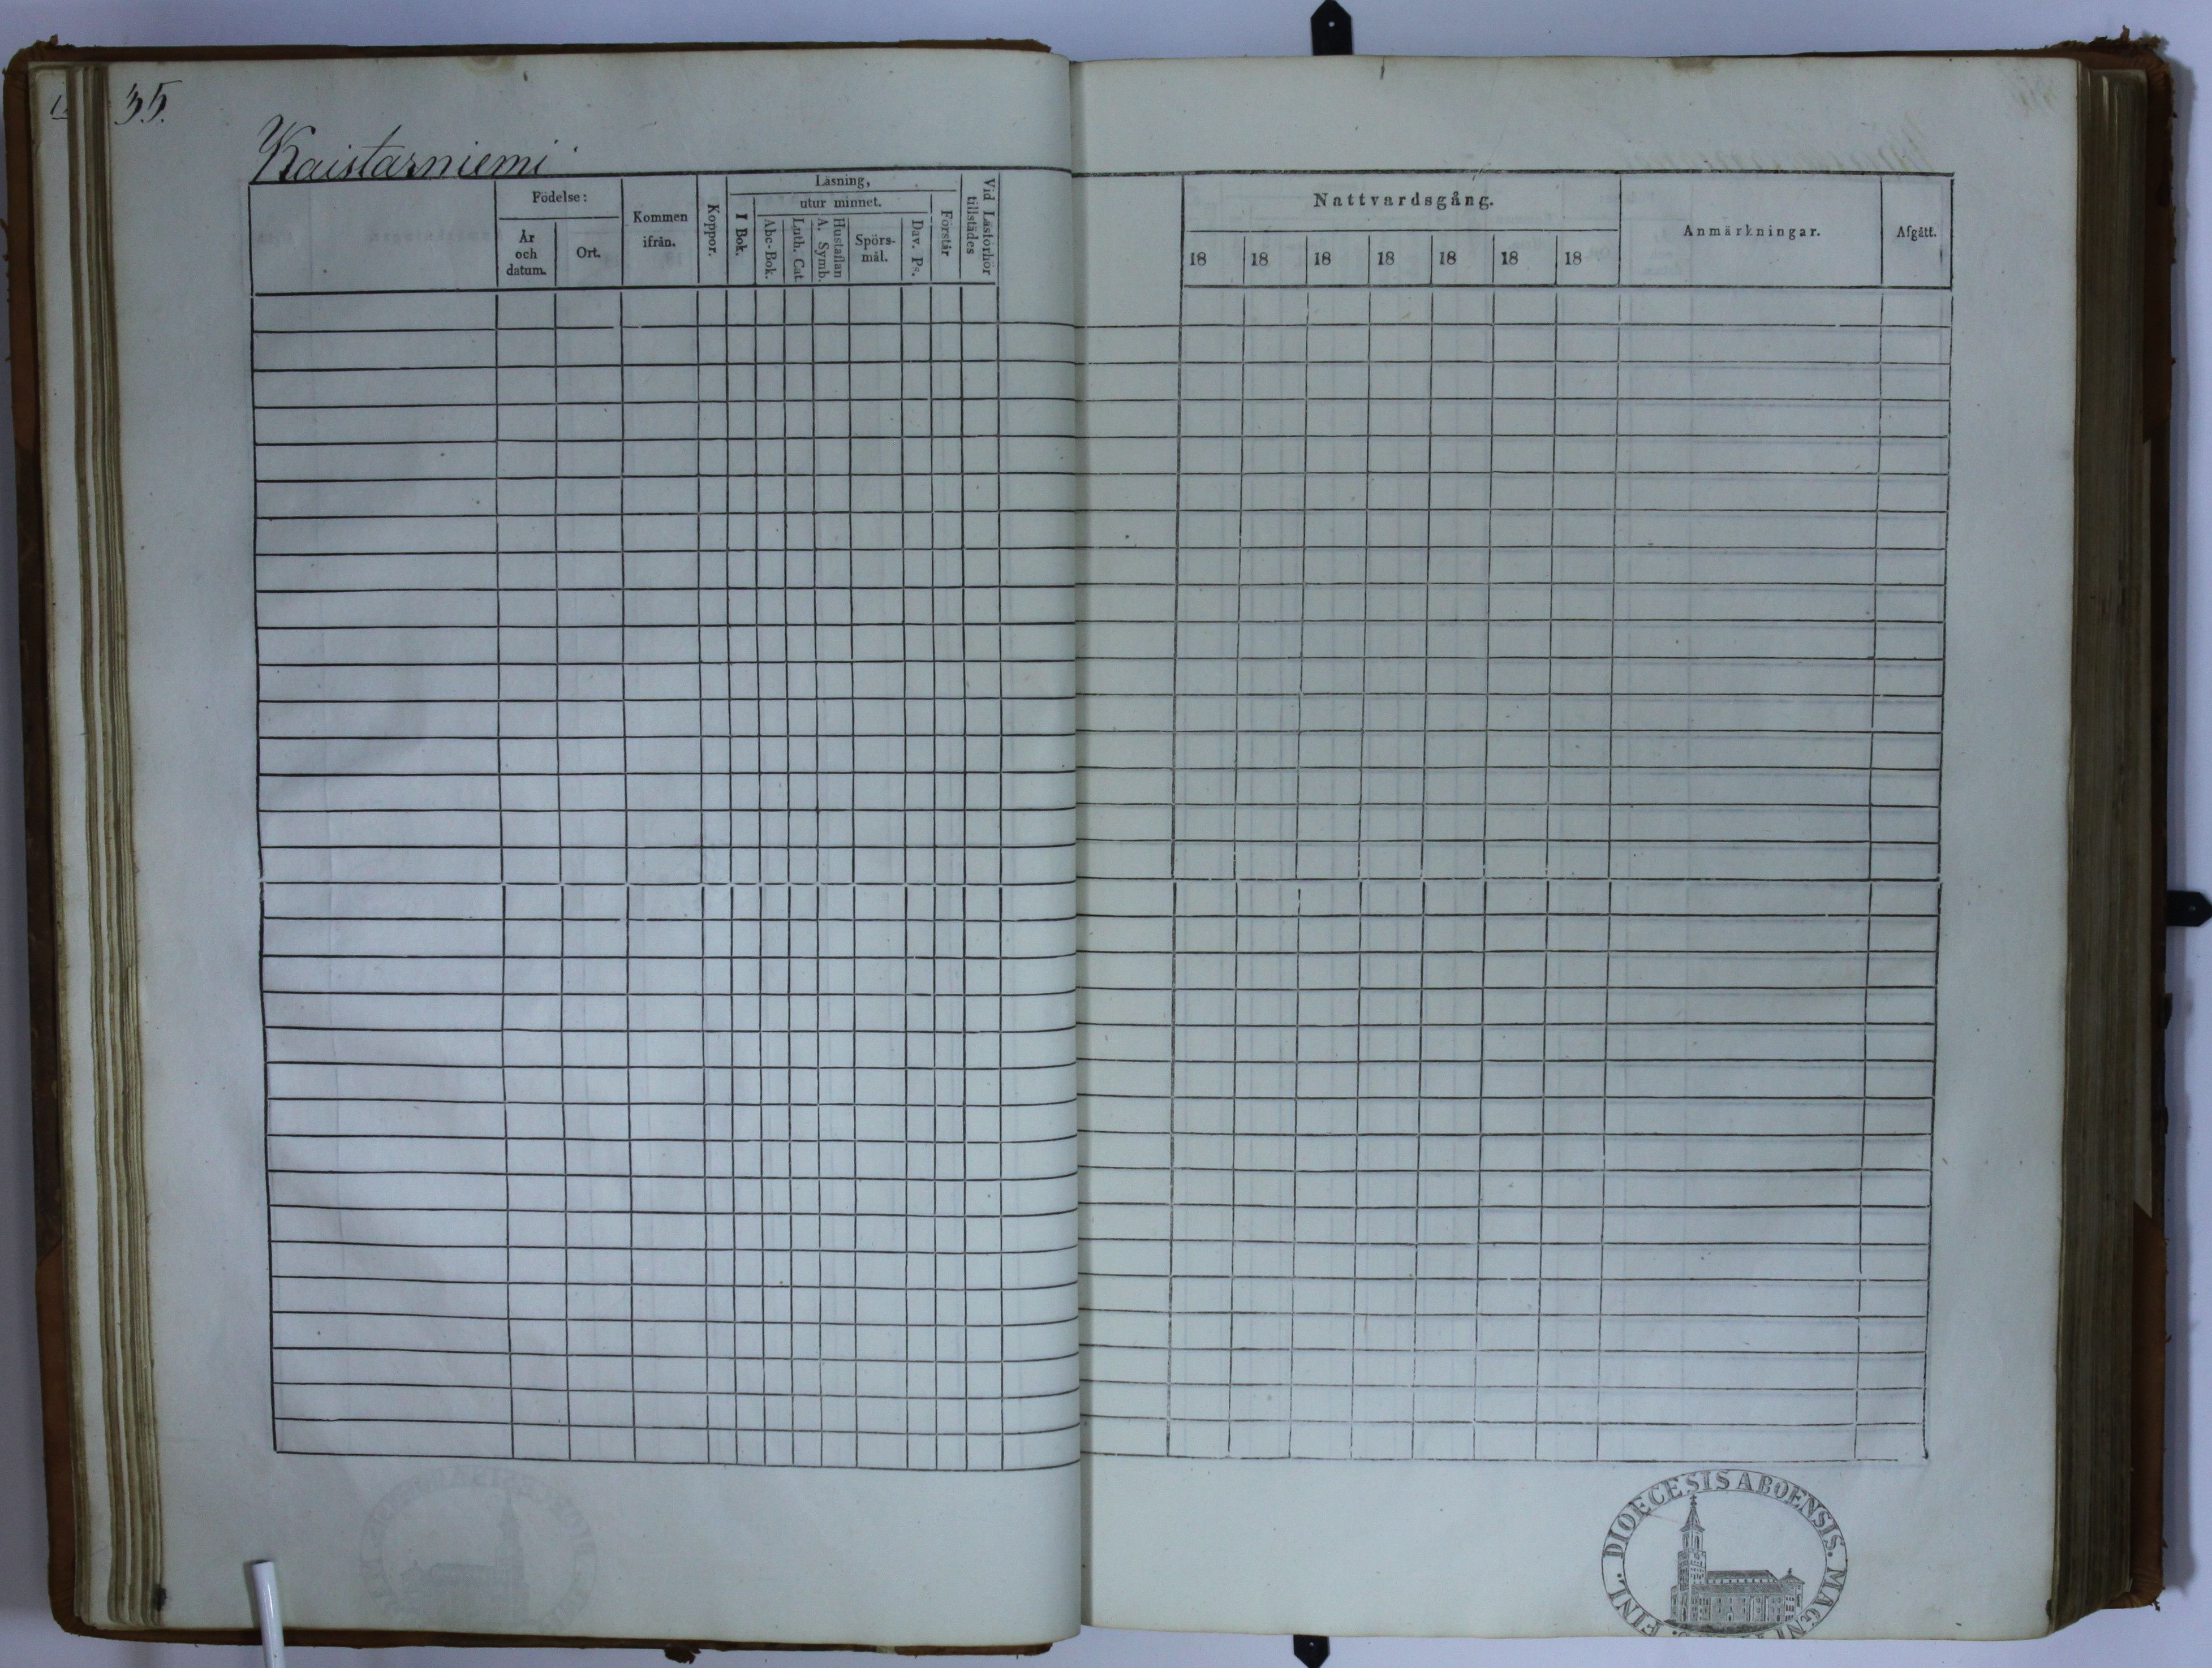 35.
Kaistarniemi
Födelse:
År
och
datum.
Ort.
Kommen
ifrån.
Koppor.
Läsning,
I Bok.
utur minnet.
Abc-Bok.
Luth. Cat
Hustaflan
A. Symb.
Spörs-
mål.
Dav. Ps.
Förstår
Vid Läsförhör
tillstädes
Nattvardsgång.
18 18 18 18 18 18 18
Anmärkningar.
Afgått.
FINL. DIOECESIS ABOENSIS. MAGNI